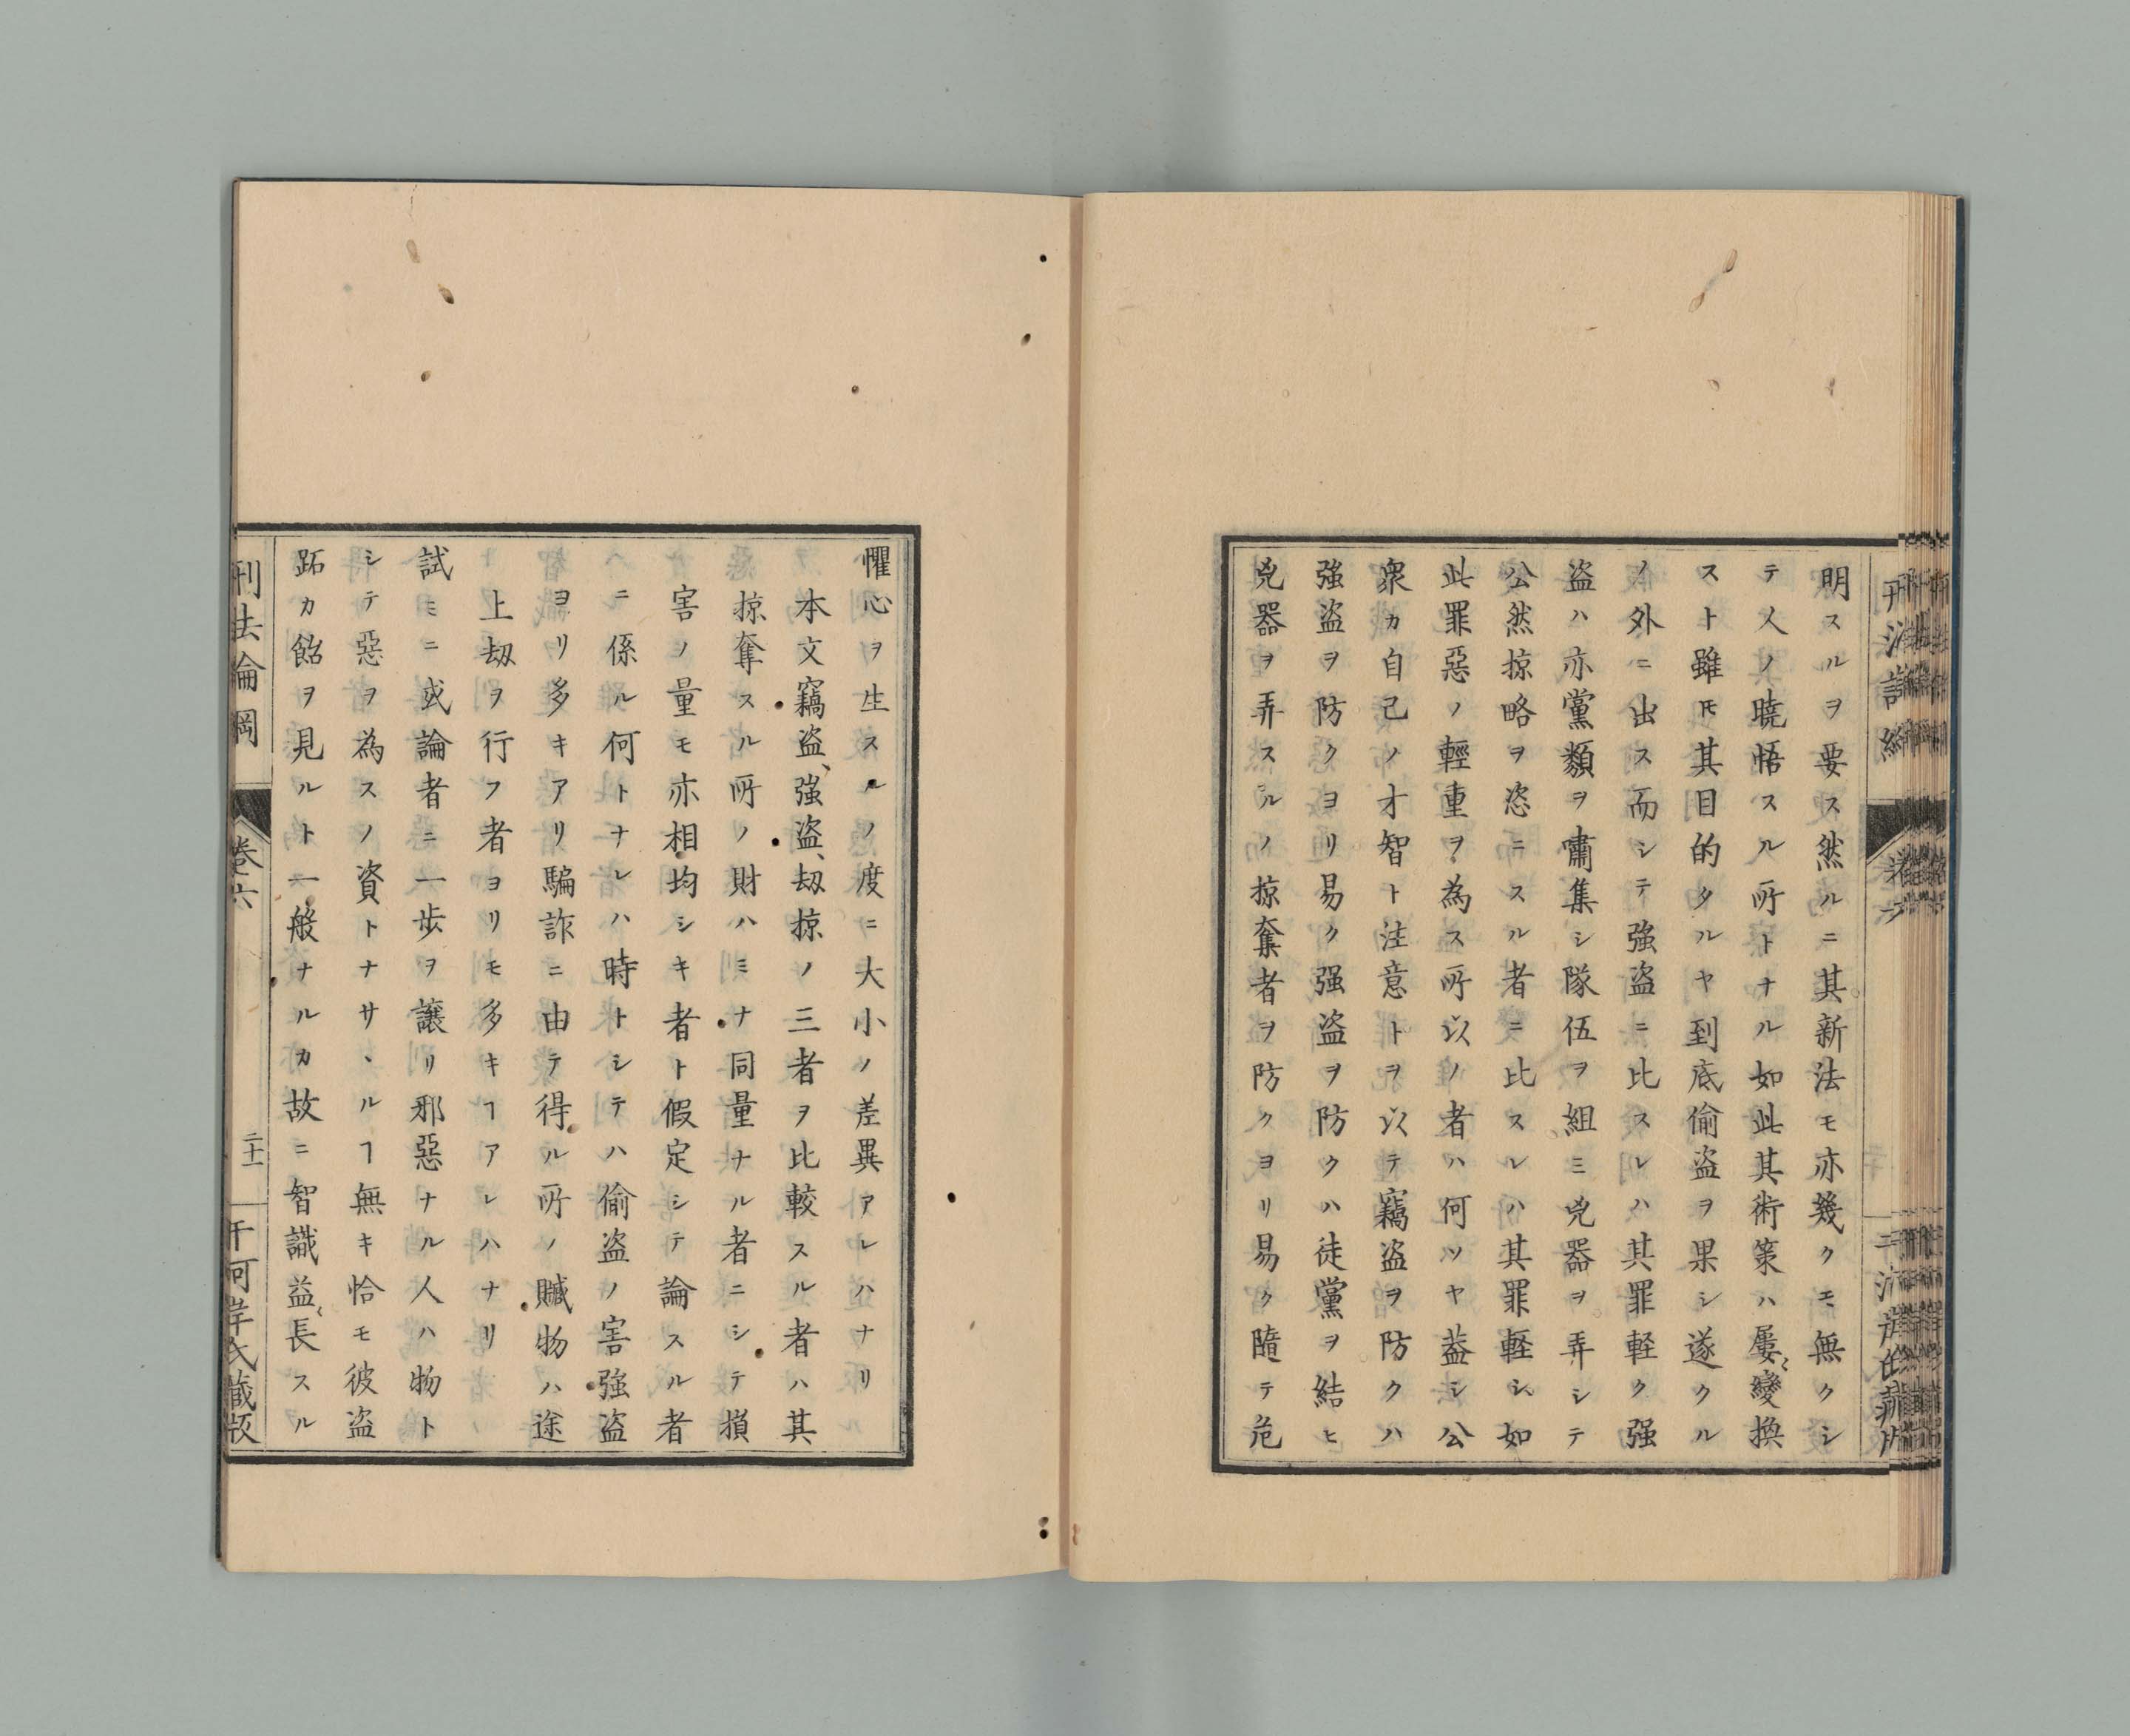 明スルヲ要ス然ルニ其新法モ亦幾クモ無クシ
テ人ノ曉悟スル所トナル如此其術策ハ屢〻變換
スト雖𪜈其目的タルヤ到底偷盗ヲ果シ遂クル
ノ外ニ出ス而シテ強盗ニ比スレハ其罪軽ク强
盗ハ亦黨類ヲ嘯集シ隊伍ヲ組ミ兇器ヲ弄シテ
公然掠略ヲ恣ニスル者ニ比スレハ其罪軽シ如
此罪惡ノ輕重ヲ為ス所以ノ者ハ何ソヤ葢シ公
衆カ自己ノ才智ト注意トヲ以テ竊盗ヲ防クハ
強盗ヲ防クヨリ易ク强盗ヲ防クハ徒黨ヲ結ヒ
兇器ヲ弄スルノ掠奪者ヲ防クヨリ易ク隨テ危
懼心ヲ生スルノ度ニ大小ノ差異アレハナリ
本文竊盗、強盗、刧掠ノ三者ヲ比較スル者ハ其
掠奪スル所ノ財ハミナ同量ナル者ニシテ損
害ノ量モ亦相均シキ者ト假定シテ論スル者
ニ係ル何トナレハ時トシテハ偷盗ノ害強盗
ヨリ多キアリ騙詐ニ由テ得ル所ノ贓物ハ途
上刧ヲ行フ者ヨリモ多キヿアレハナリ
試ミニ或論者ニ一歩ヲ譲リ邪惡ナル人ハ物ト
シテ惡ヲ為スノ資トナサヽルヿ無キ恰モ彼盗
跖カ飴ヲ見ルト一般ナルカ故ニ智識益〻長スル
刑法論綱
卷六
二十一
干河岸氏藏版